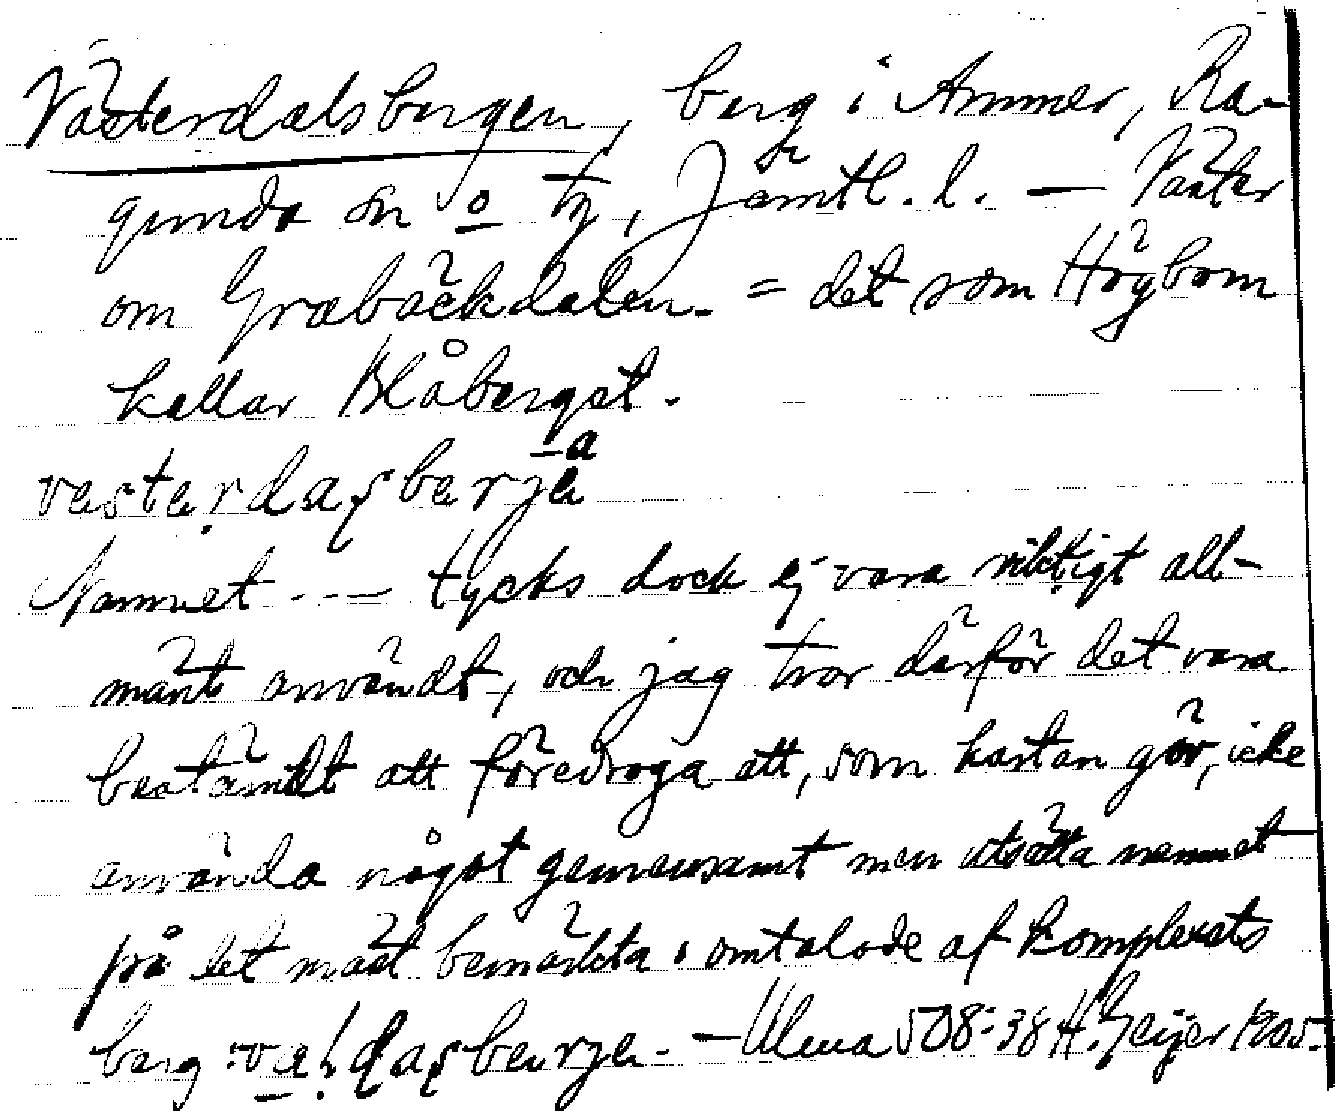 Västerdalsbergen, berg i Ammer, Ra-
gunda sn o tg, Jämtl. l. — Väster
om Gräbäckdalen. = det som Högbom
kallar Blåbergst.
Namnet --- tycks dock ej vara riktigt all-
mänt användt, och jag tror därför det vara
bestämdt att föredraga att, som kartan gör, icke
använda något gemensamt men utsätta namnet
på det mäst bemärkta, omtalade af komplexets
berg: — Ulma 508:38 H. Geijer 1905.